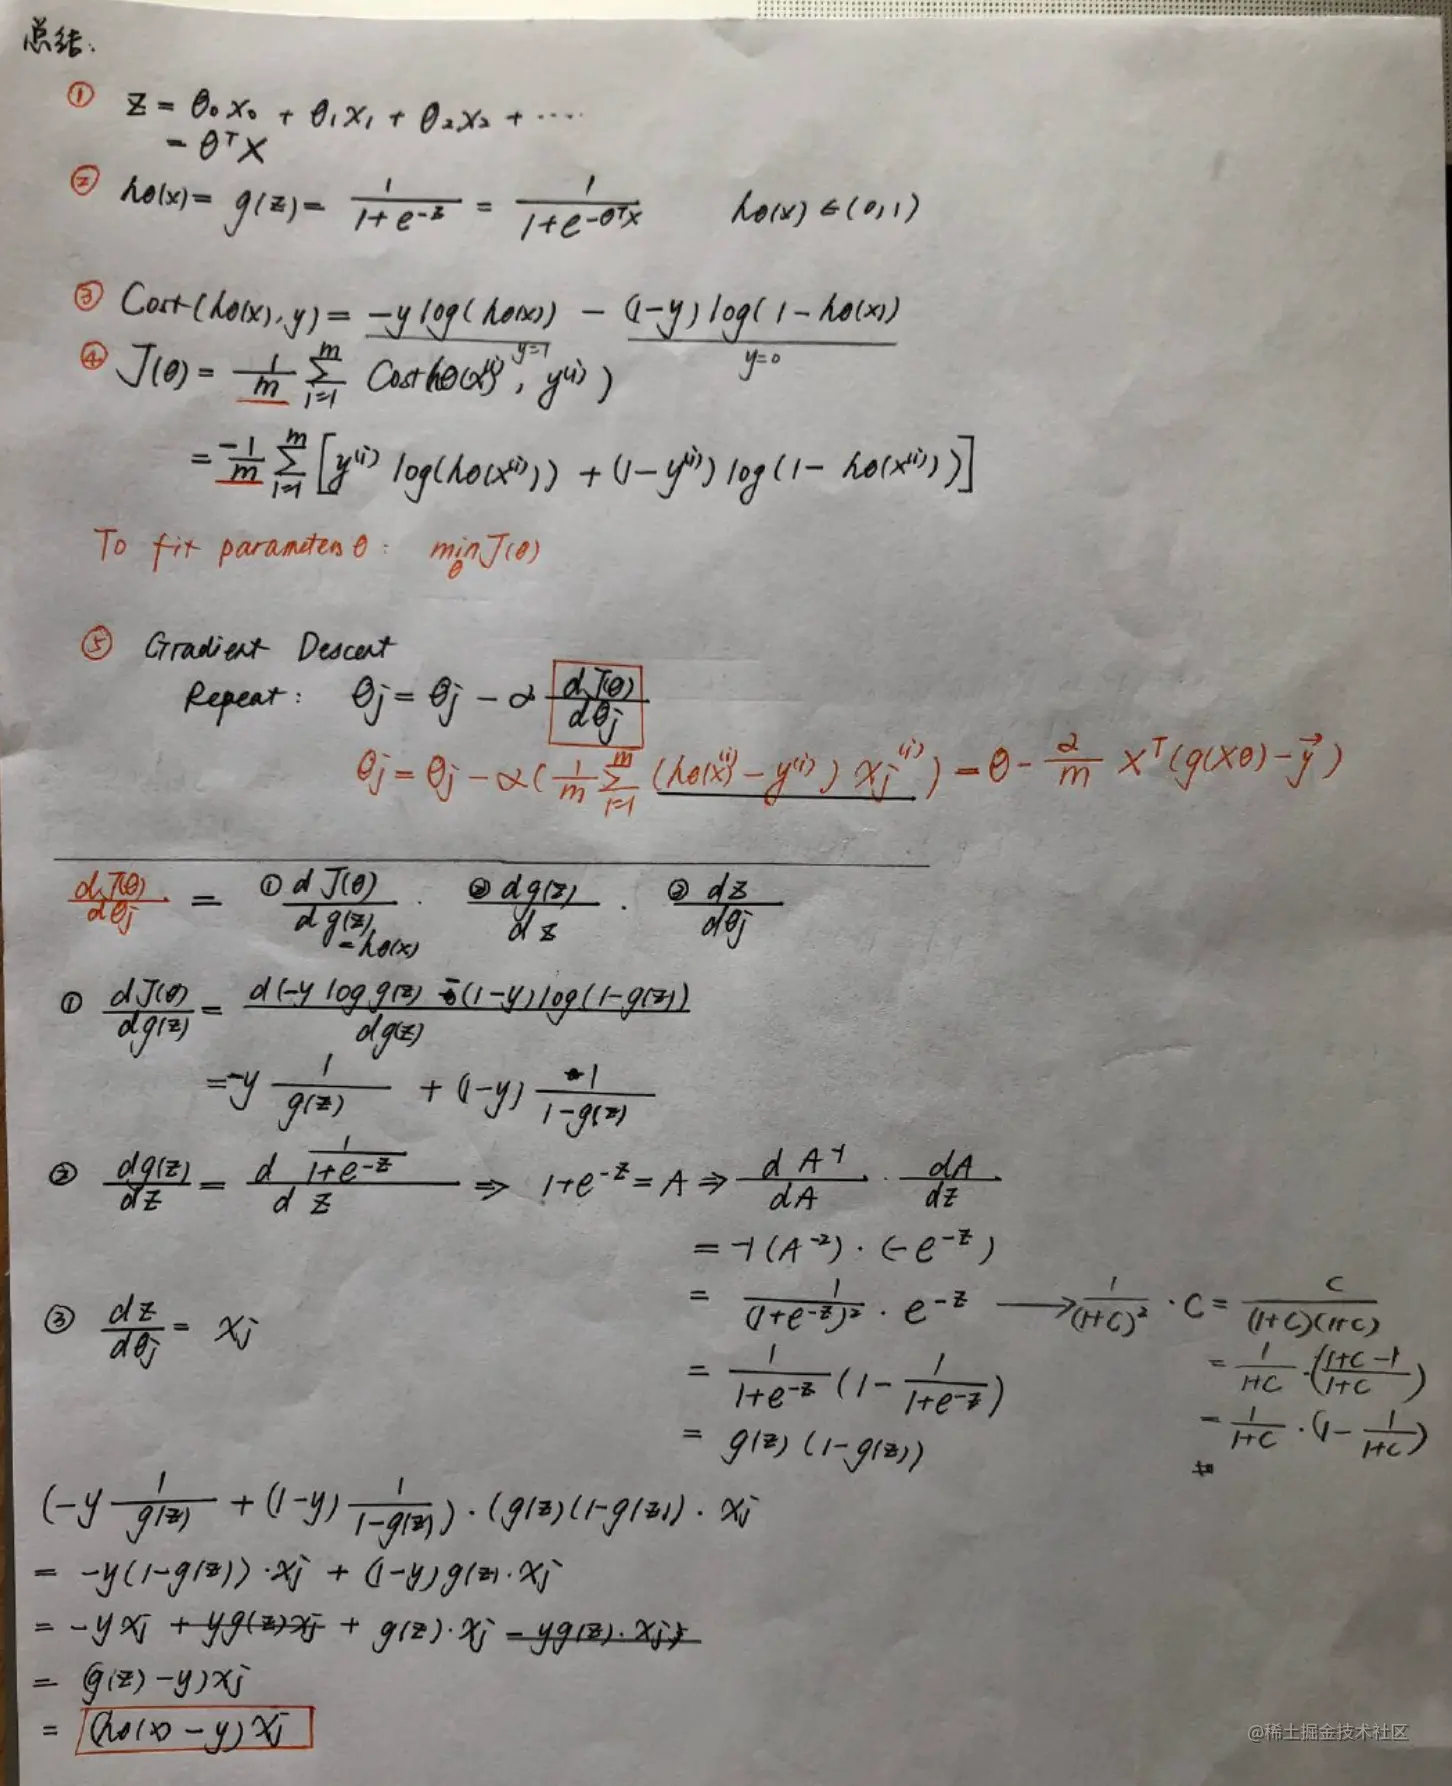 总结:
① z = θ₀x₀ + θ₁x₁ + θ₂x₂ + ····
= θᵀX
② hθ(x) = g(z) = 1/(1+e^(-z)) = 1/(1+e^(-θᵀx)) hθ(x) ∈ (0,1)
③ Cost(hθ(x), y) = -y log(hθ(x)) - (1-y) log(1-hθ(x))
y=1 y=0
④ J(θ) = 1/m Σ_{i=1}^{m} Cost(hθ(x^(i)), y^(i))
= -1/m Σ_{i=1}^{m} [y^(i) log(hθ(x^(i))) + (1-y^(i)) log(1-hθ(x^(i)))]
To fit parameters θ: min_θ J(θ)
⑤ Gradient Descent
Repeat: θj = θj - α dJ(θ)/dθj
θj = θj - α(1/m Σ_{i=1}^{m} (hθ(x^(i)) - y^(i)) xj^(i)) = θ - α/m Xᵀ(g(Xθ) - y⃗)
dJ(θ)/dθj = ① dJ(θ)/dg(z) · ② dg(z)/dz · ③ dz/dθj
= hθ(x)
① dJ(θ)/dg(z) = d(-y log g(z) - (1-y) log(1-g(z))/dg(z)
= -y 1/g(z) + (1-y) 1/(1-g(z))
② dg(z)/dz = d 1/(1+e^(-z)) / dz ⇒ 1+e^(-z) = A ⇒ dA^(-1)/dA · dA/dz
= -1(A^(-2)) · (-e^(-z))
= 1/(1+e^(-z))² · e^(-z) → 1/(1+C)² · C = C/((1+C)(1+C))
③ dz/dθj = xj
= 1/(1+e^(-z)) (1 - 1/(1+e^(-z))) = 1/(1+C) · ((1+C-1)/(1+C))
= g(z)(1-g(z)) = 1/(1+C) · (1 - 1/(1+C))
(-y 1/g(z) + (1-y) 1/(1-g(z))) · (g(z)(1-g(z)) · xj
= -y(1-g(z)) · xj + (1-y)g(z) · xj
= -yxj + yg(z)xj + g(z)·xj - yg(z)·xj
= (g(z)-y)xj
= (hθ(x)-y)xj
@稀土掘金技术社区